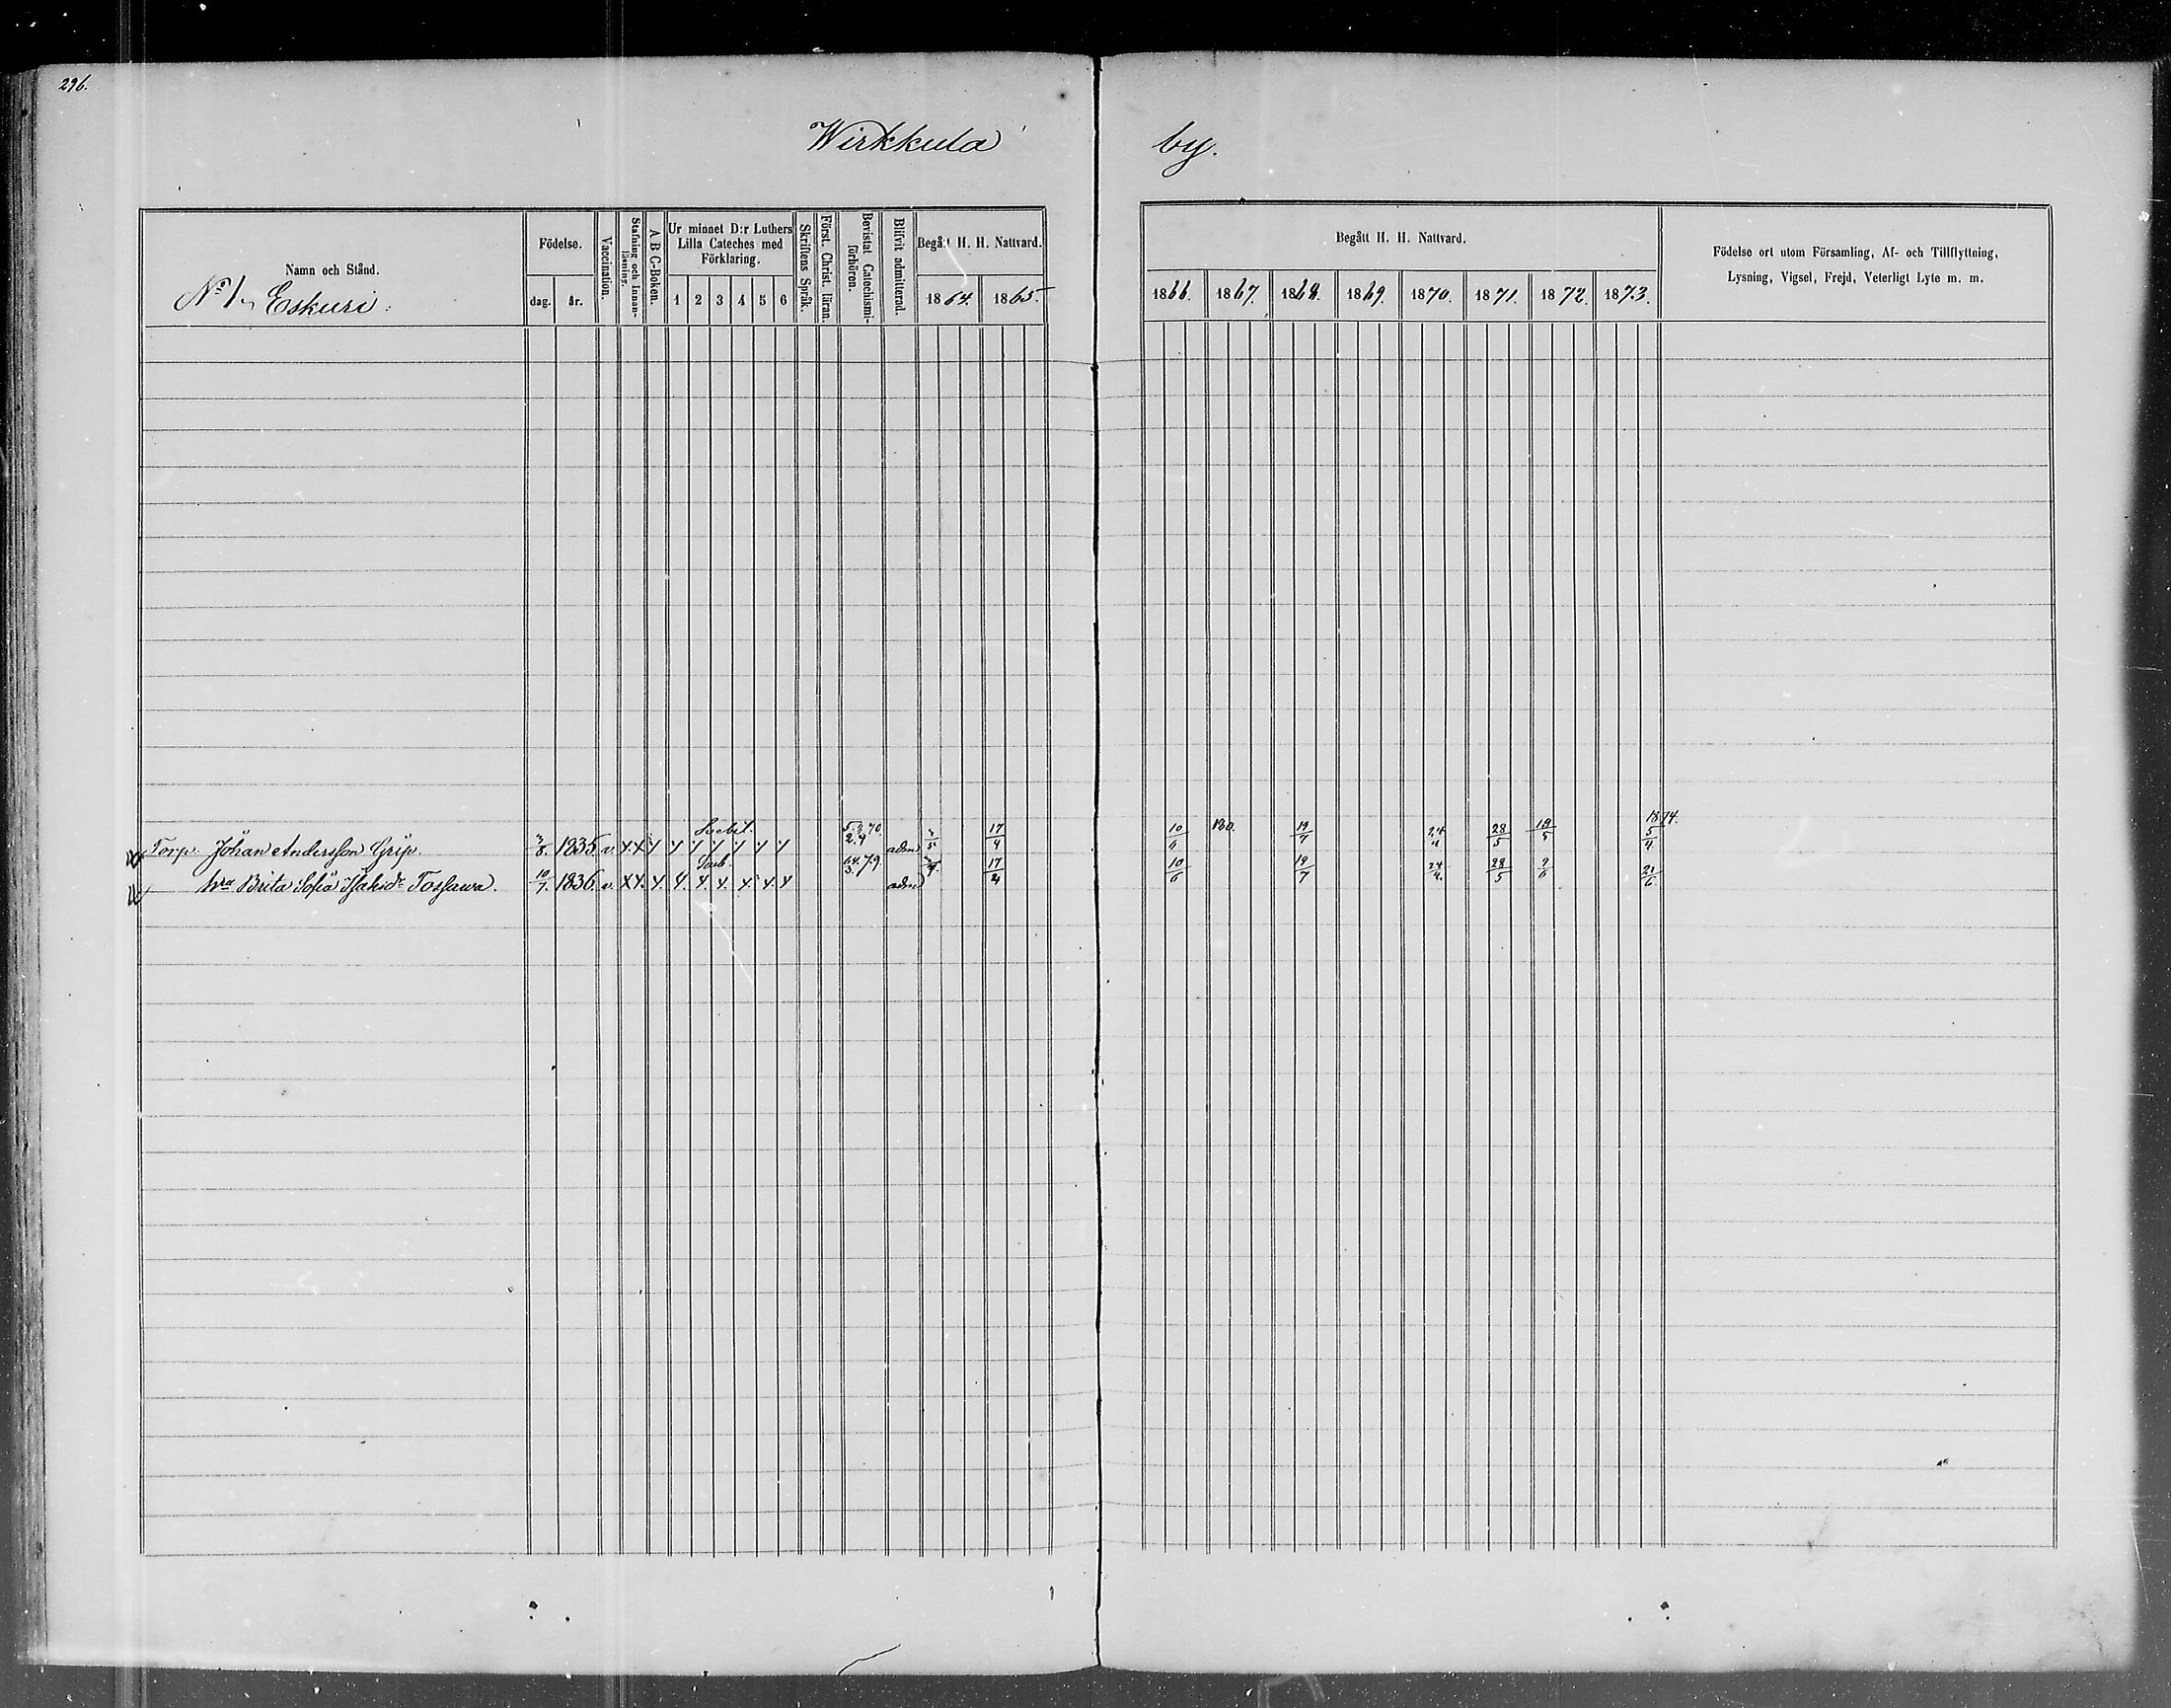 296.
Wirkkula by.
Namn och Stånd.
No 1. Eskuri.
Födelse.
dag. år.
Vaccination.
Stafning och Innan-läsning.
A B C-Boken.
Ur minnet D:r Luthers
Lilla Cateches med
Förklaring.
1 2 3 4 5 6
Skriftens Språk.
Först. Christ. läran.
Bevistat Catechismi-förhören.
Blifvit admitterad.
Begått H. H. Nattvard.
1864. 1865.
Begått H. H. Nattvard.
1866. 1867. 1868. 1869. 1870. 1871. 1872. 1873.
Födelse ort utom Församling, Af- och Tillflyttning,
Lysning, Vigsel, Frejd, Veterligt Lyte m. m.
Torp. Johan Andersson Grip. 3/8. 1835. v. 5.3.70. 2.4 adm 17/4 10/6 19/7 24/4 28/5 19/5 18 74. 5/4
hru Brita Sofia Isaksdr Tossawa. 10/7. 1836. v. 64.7.9. 3. adm 17/4 10/6 19/7 24/4. 28/5 9/6 21/6.